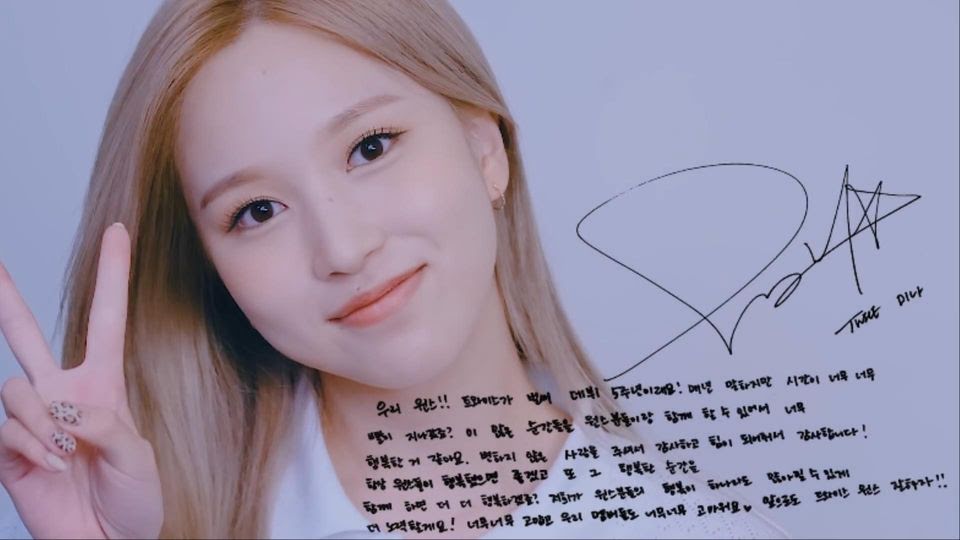 TWICE 미나
우리 원스!! 트와이스가 벌써 데뷔 5주년이래요! 매년 말하지만 시간이 너무 너무
빨리 지나가죠? 이 많은 순간들을 원스분들이랑 함께 할 수 있어서 너무
행복한 거 같아요. 변하지 않은 사랑을 주셔서 감사하고 힘이 되어줘서 감사합니다!
항상 원스들이 행복했으면 좋겠고 또 그 행복한 순간을
함께 하면 더 더 행복하겠죠? 저희가 원스분들의 행복이 하나라도 많아질 수 있게
더 노력할게요! 너무너무 고맙고 우리 멤버들도 너무너무 고마워요♥ 앞으로도 트와이스 원스 잘하자!!